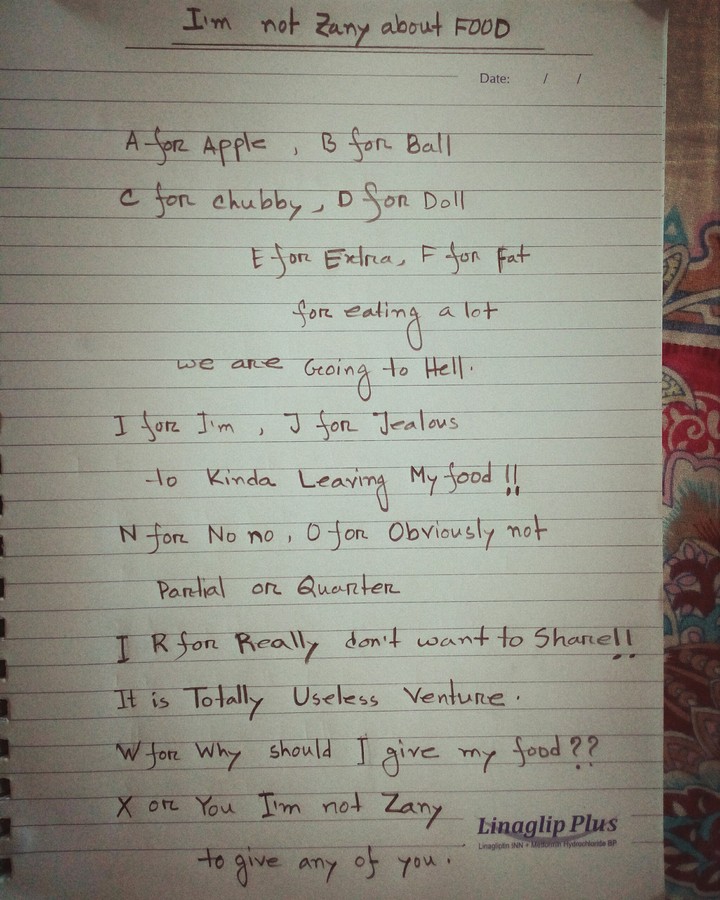 I'm not Zany about FOOD
Date: / /
A for Apple , B for Ball
C for chubby, D for Doll
E for Extra, F for Fat
for eating a lot
we are Going to Hell.
I for I'm , J for Jealous
to Kinda Leaving My food !!
N for No no , O for Obviously not
Partial or Quarter
I R for Really don't want to Share!!
It is Totally Useless Venture.
W for Why should I give my food ??
X or You I'm not Zany
to give any of you.
Linaglip Plus
Linagliptin INN + Metformin Hydrochloride BP